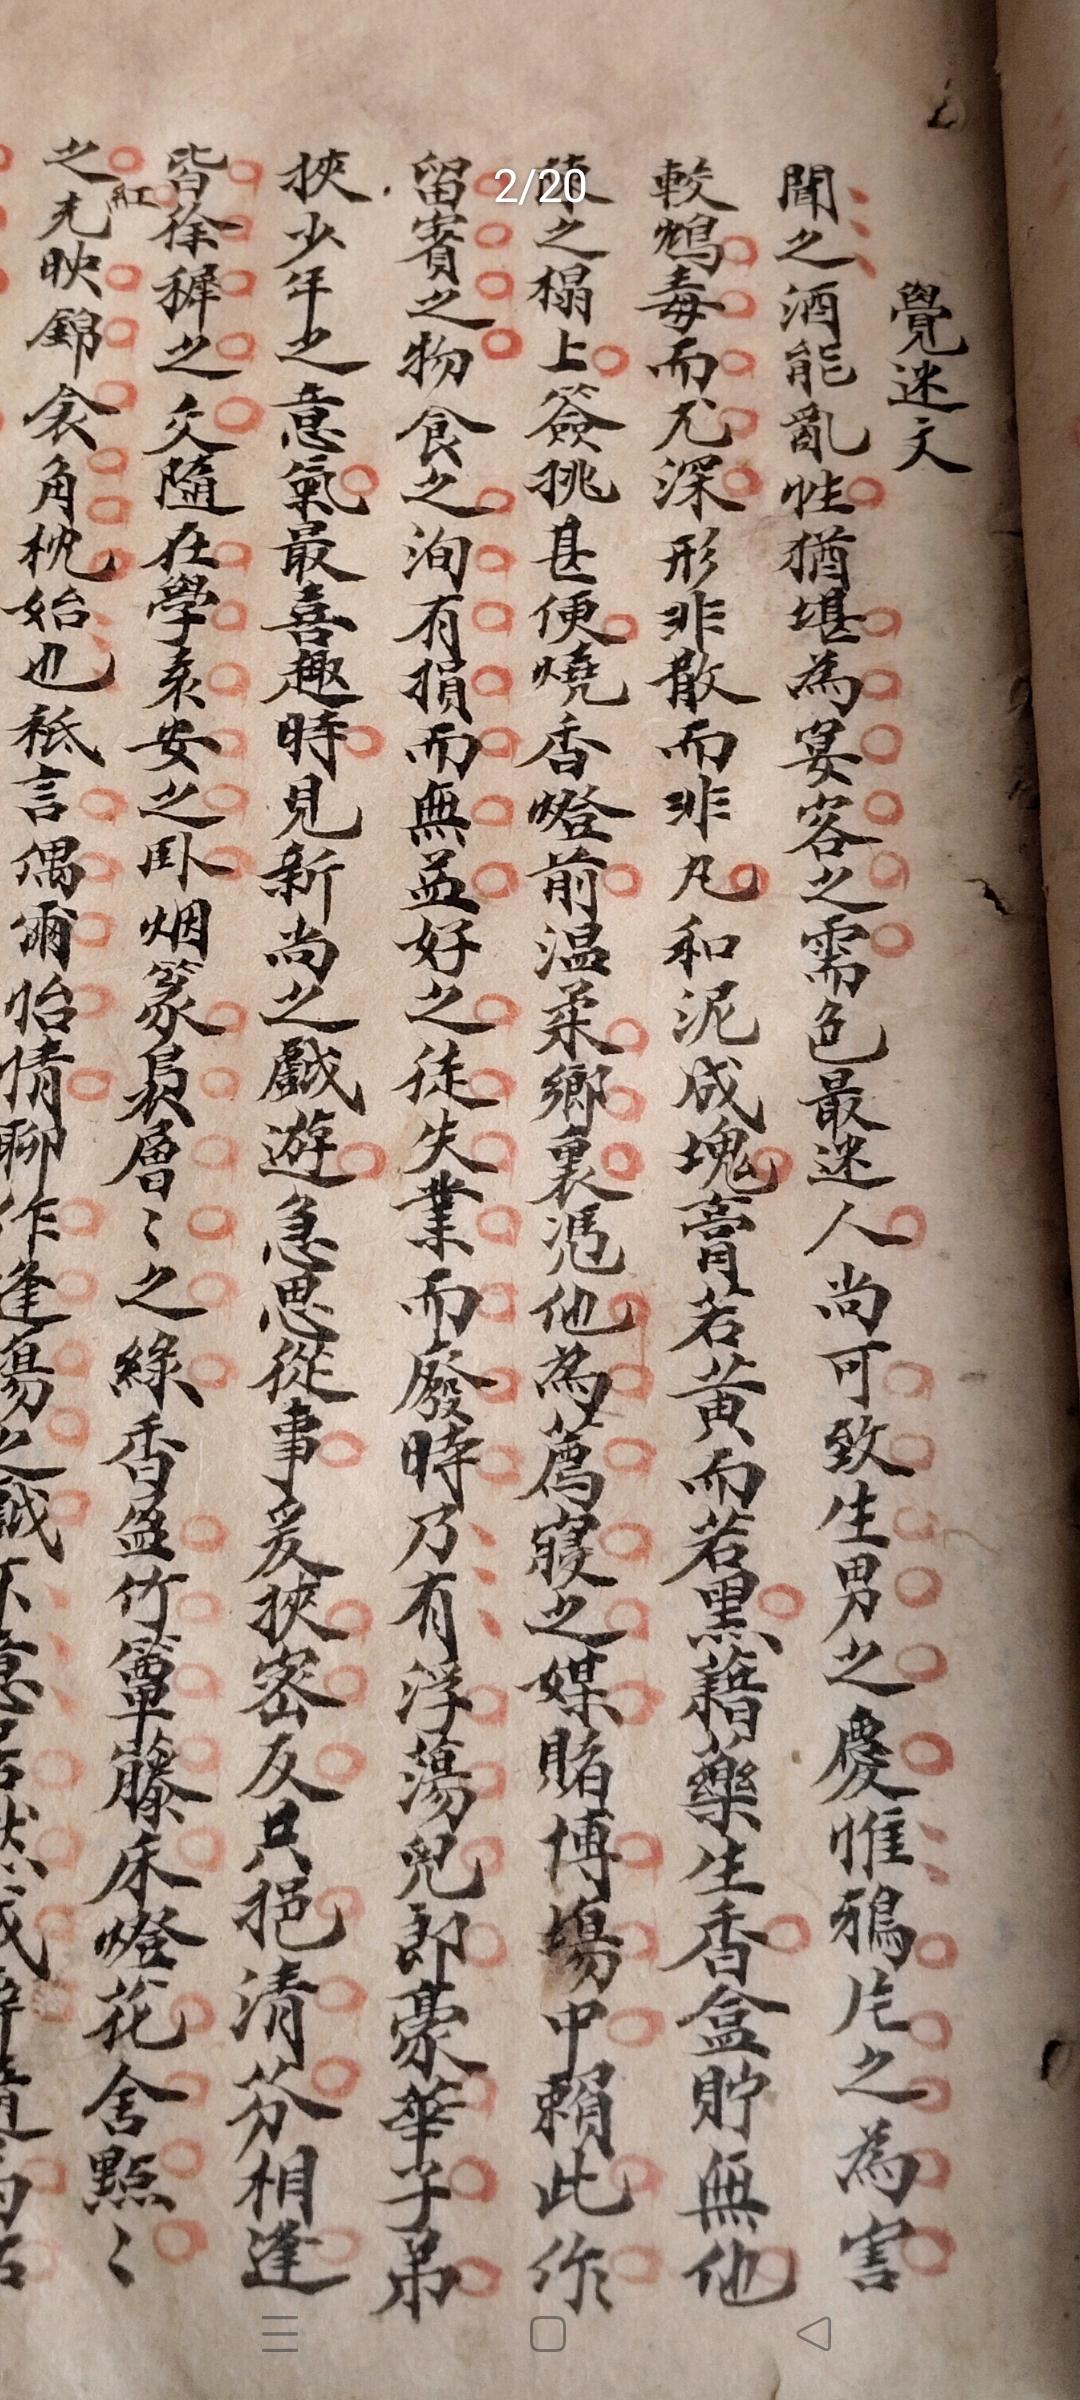 覺迷文
聞之酒能亂性猶堪為宴客之需色最迷人尚可致生男之慶惟鴉片之為害
較鴆毒而尤深形非散而非凡和泥成塊膏若黃而若黑藉藥生香盒貯無他
2/20
之榻上簽挑甚便燒香燈前温柔鄉裏馮他為薦寢之媒賭博塲中賴此作
留賓之物食之洵有損而無益好之徒失業而廢時乃有浮蕩兒郎豪華子弟
挾少年之意氣最喜趣時見新尚之戲遊急思從事爰挾密友只挹清芬相逢
皆徐穉之交隨在學袁安之卧烟篆裊層〻之綠香盈竹簟藤床燈花舍點〻
紅
之光映錦衾角枕始也祇言偶爾怡情聊作逢塲之戯